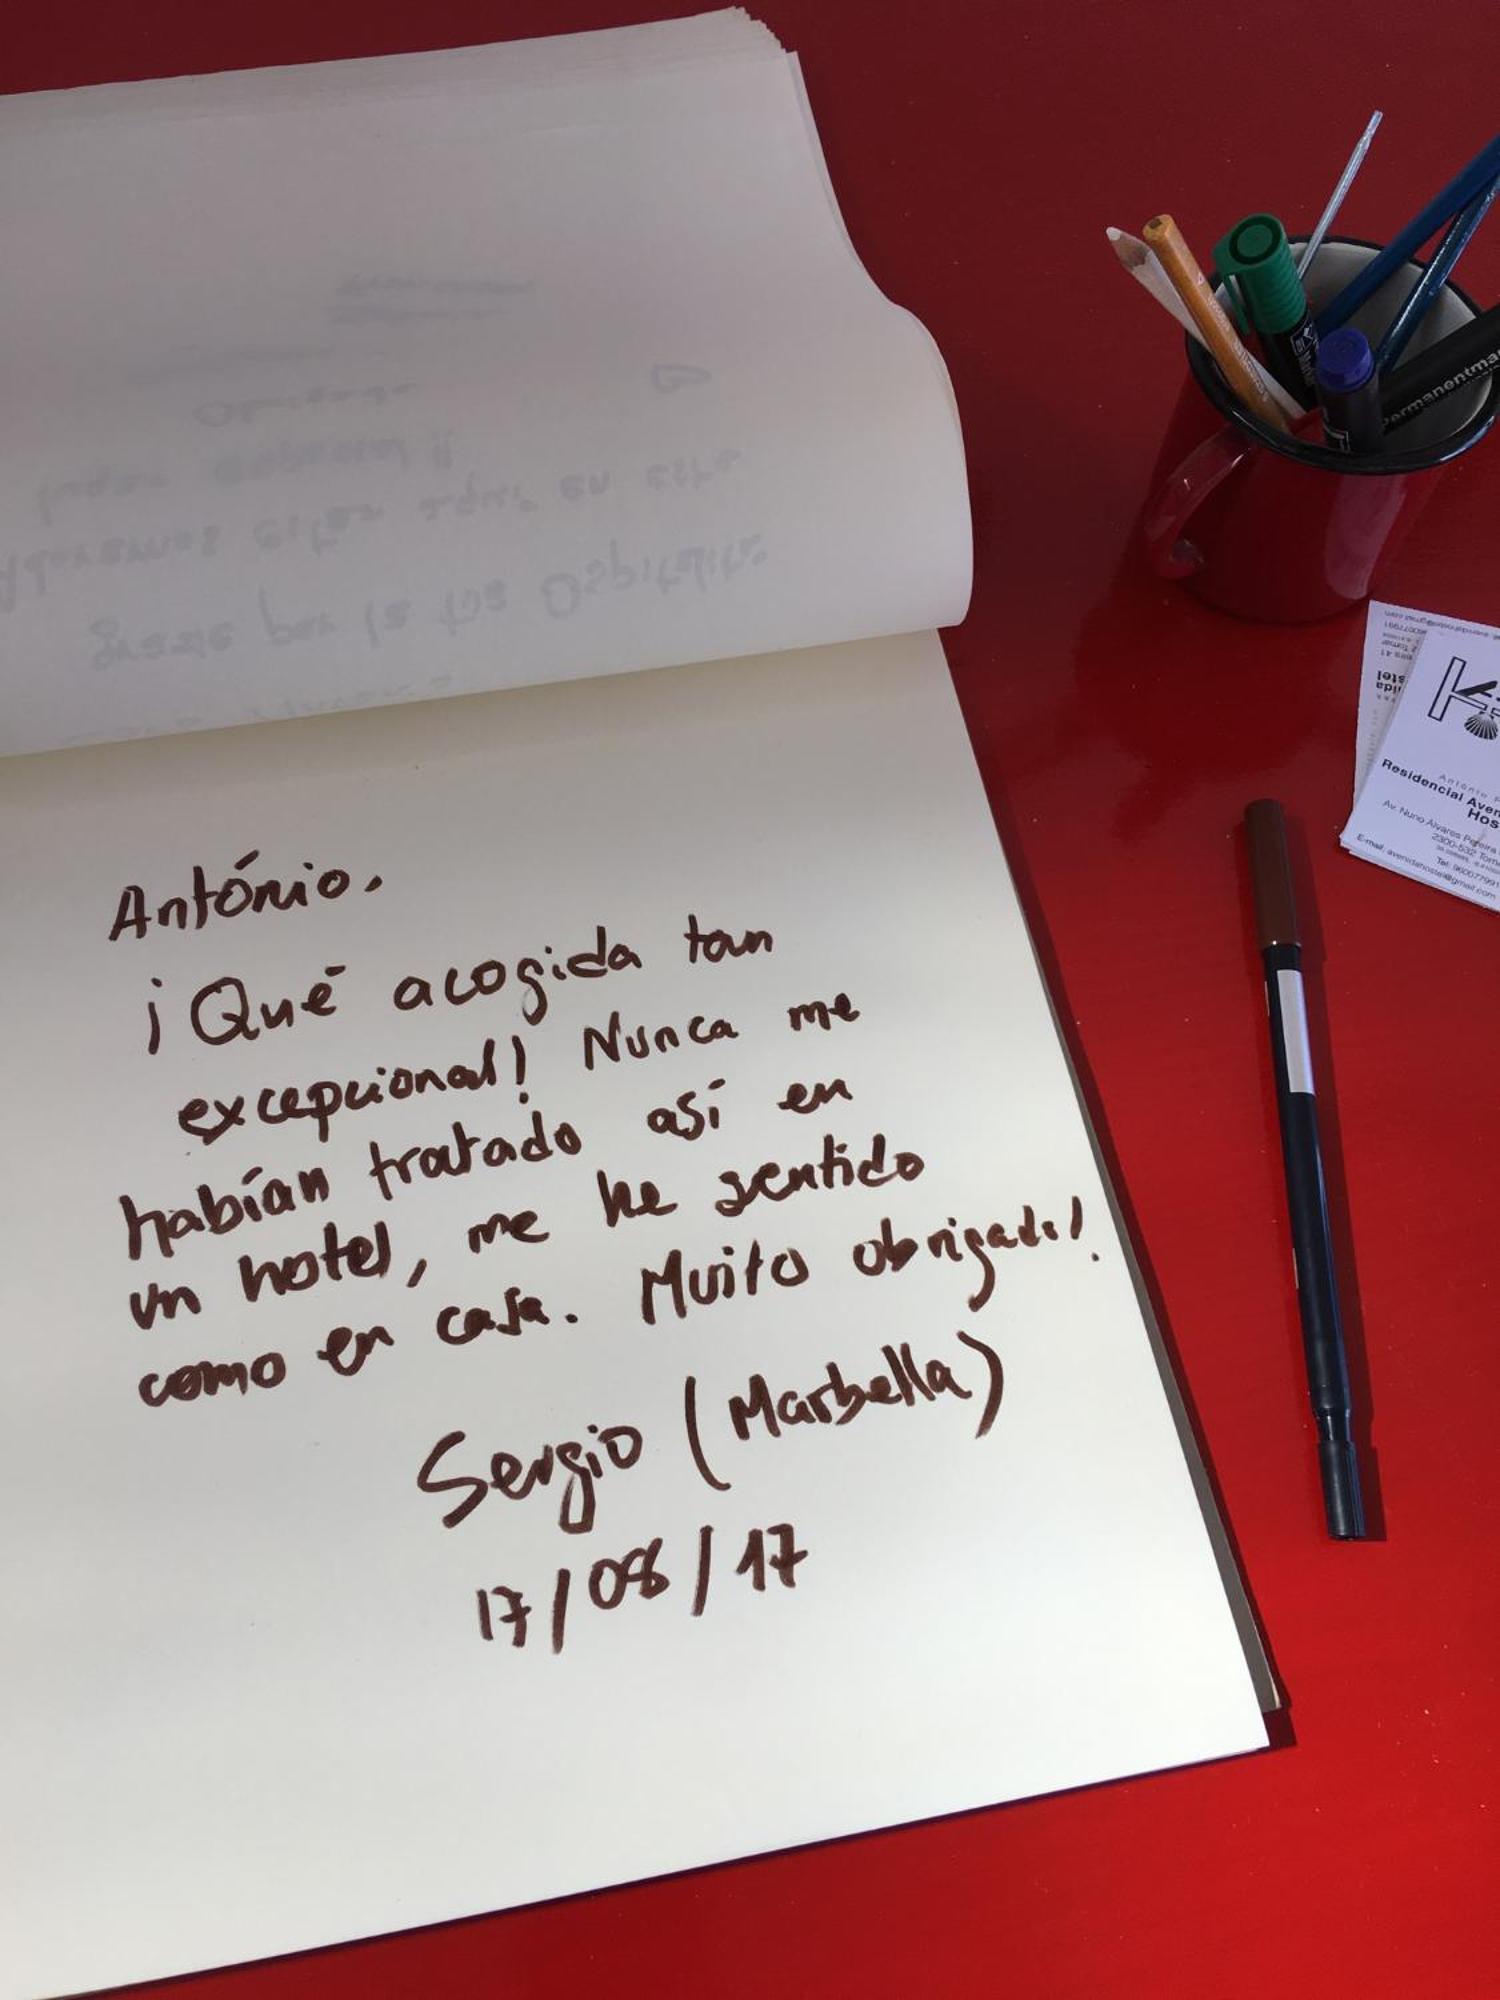 António.
¡Qué acogida tan
excepcional! Nunca me
habían tratado así en
un hotel, me he sentido
como en casa. Muito obrigado!
Sergio (Marbella)
17/08/17
Permanentma
António
Residencial Aven
Hos
Av. Nuno Álvares Pereira
2300-532 Toma
Tel: 960077991
E-mail: avenidahostel@gmail.com